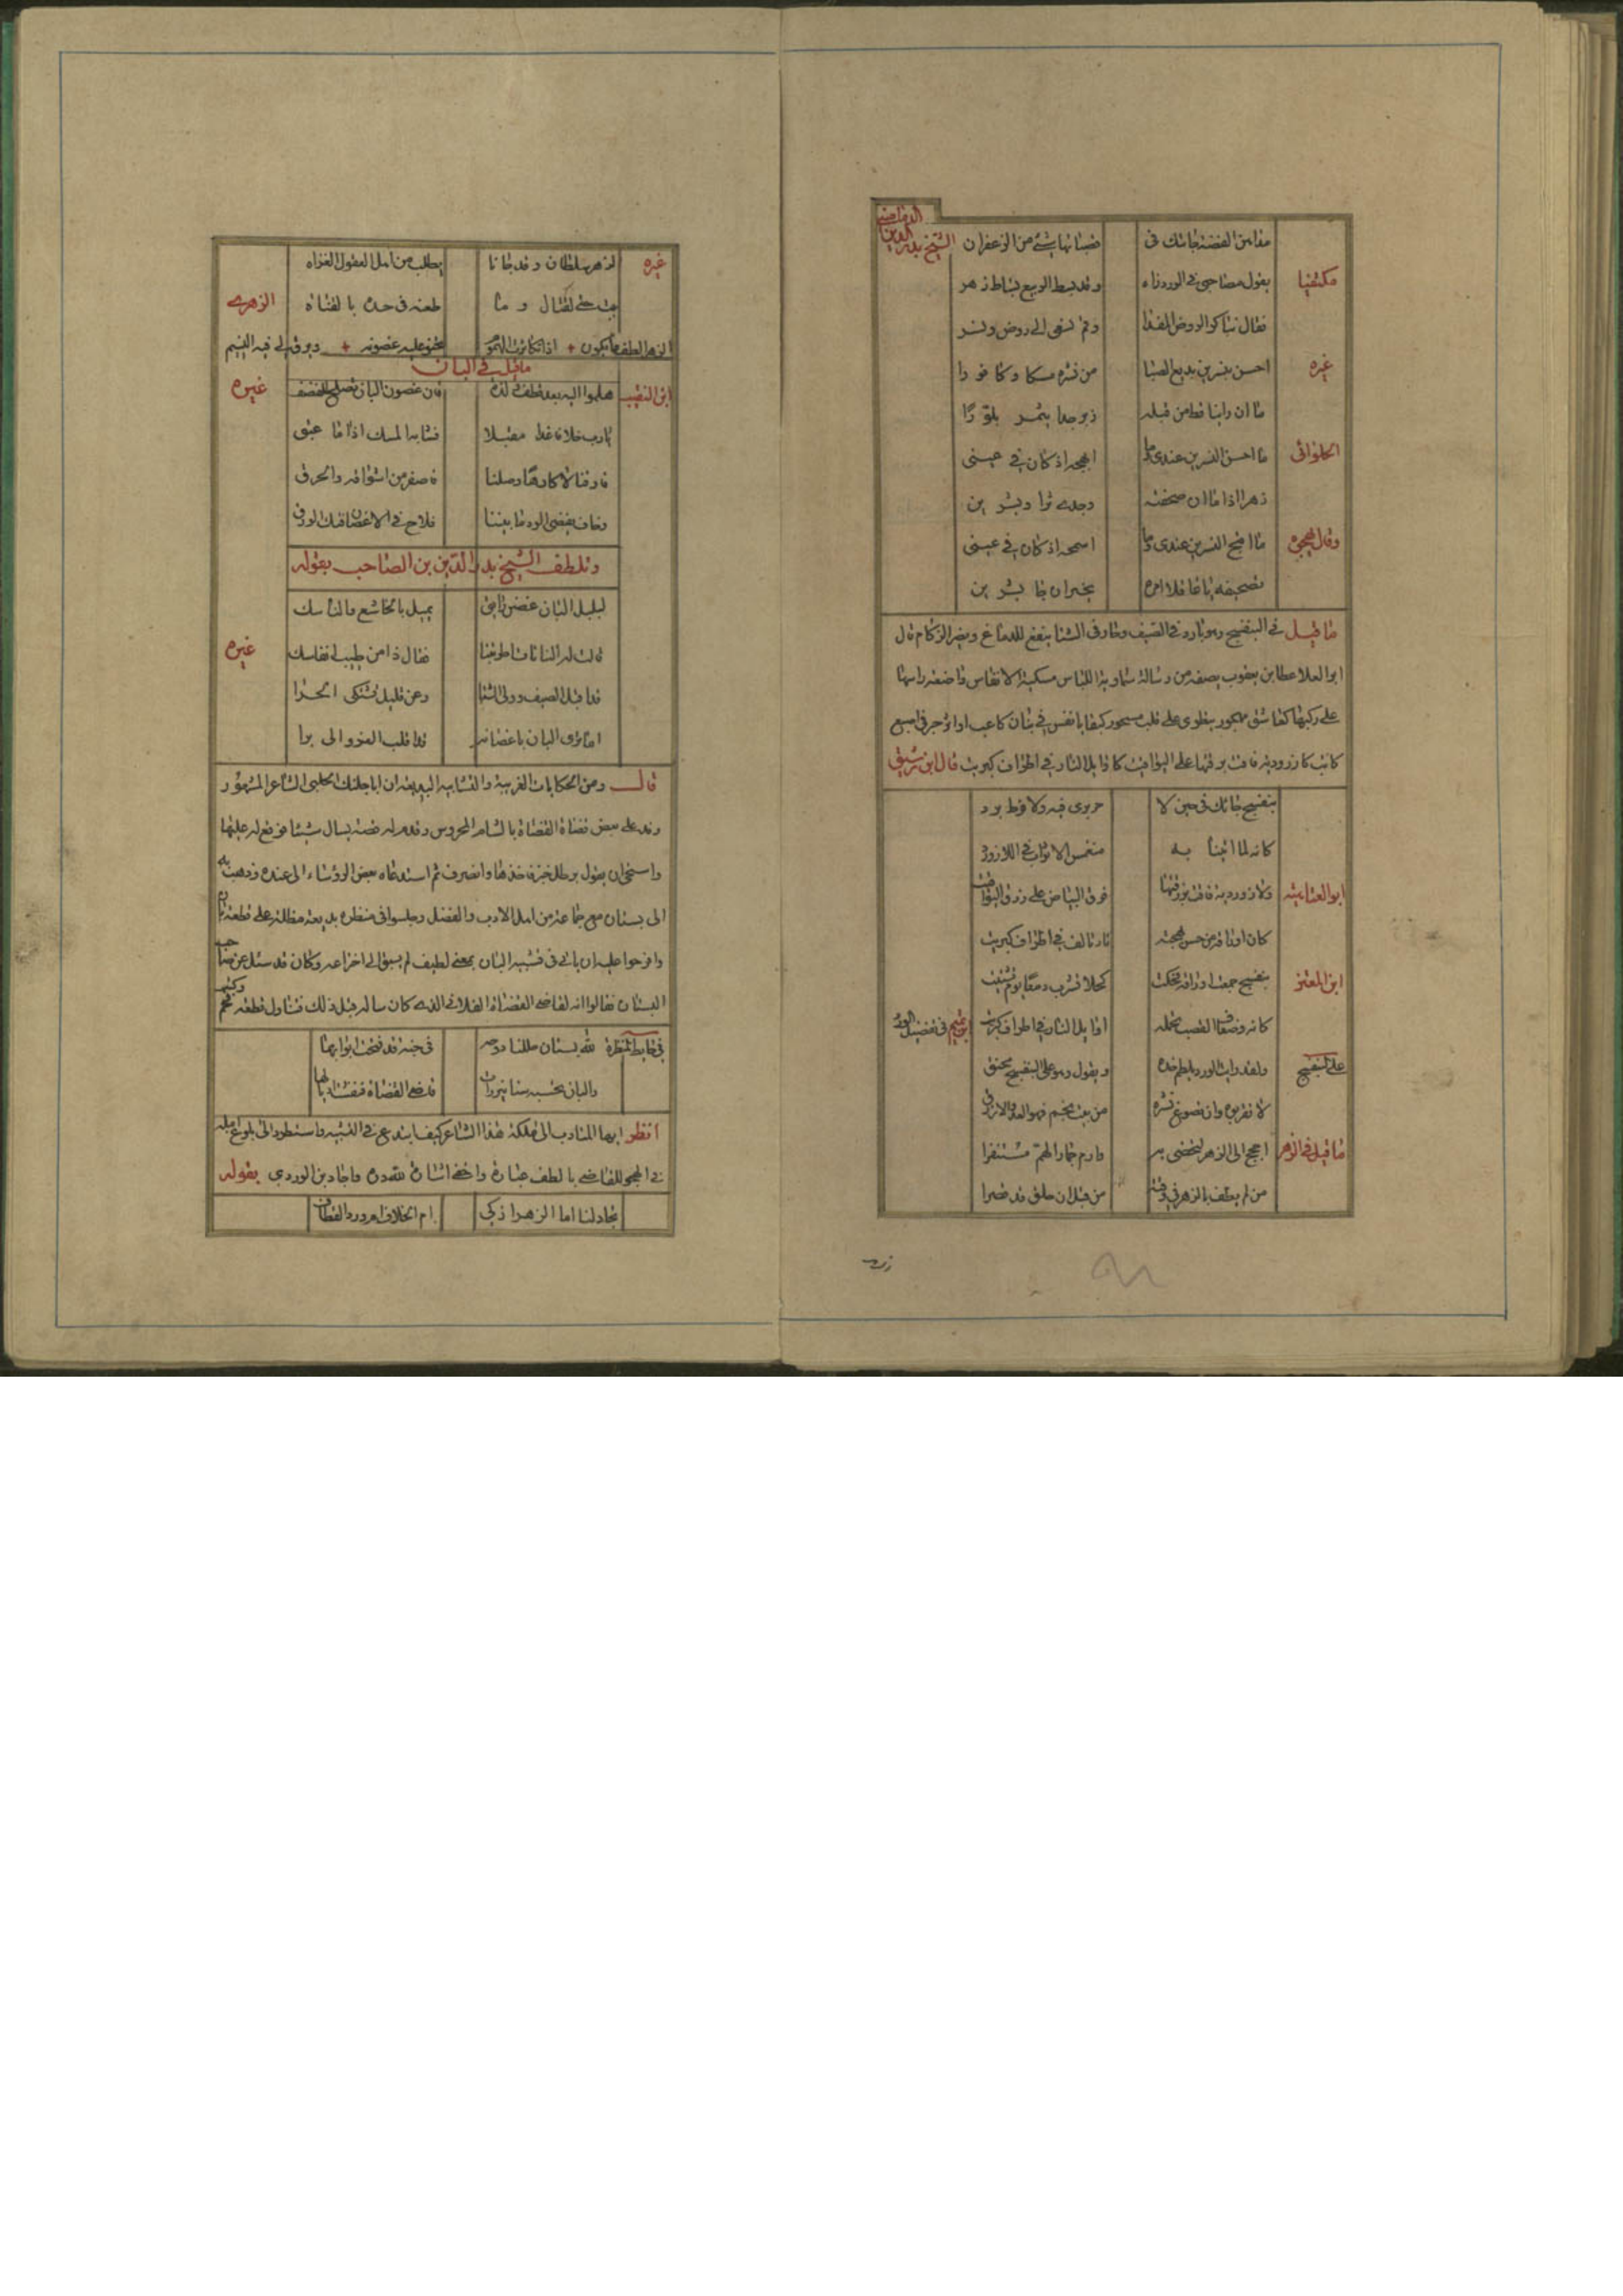 مداهن الفضة جاتك فى ضمانها شئ من الزعفران الشيخ بدر الدين الدماميني
مكتفيا يقول مصاحبى فى الورد زاه وقد بسط الربيع بساط زهر
فقال نباكر الروض المفدا وقم نسعى الى روض ونسر
غيره احسن بنسرين بديع الصبا من نشره مسكا وكافورا
ما ان راينا قط من قبله زبرجدا يثمر بلورا
الحلوانى ما احسن النسرين عندى وما املحه اذ كان فى عينى
زهر اذا ما ان صحفته وجدته ثرا وبشرين
وقال يهجوه ما اقبح النسرين عندى وما اسمجه اذ كان فى عينى
تصحيفه يا غافلا امره يخبر ان جا بشرين
ما قيل فى البنفسج وهو بارد فى الصيف وحار فى الشتا ينفع للدماغ ويضر الزكام قال
ابو العلا عطا بن يعقوب يصفه من رسالة سماوية اللباس مسكية الانفاس واضعة راسها
على ركبتها كعاشق مهجور ينطوى على قلب مسجور كبقايا نقس فى بنان كاعب او اثر حرق اصبع
كاتب كا زرودية فاقت بزرقتها على اليواقيت كاوايل النار فى اطراف كبريت قال ابن رشيق
بنفسج جاتك فى حين لا حر يرى فيه ولا فرط برد
كانه لما اتينا به منغمس الاثواب فى اللازورد
ابو العتاهيه ولازوردية فاقت بزرقتها فوق البياض على زرق اليواقيت
كان اوراقه من حسن بهجته نار تالف فى اطراف كبريت
ابن المعتز بنفسج جمعت اوراقه فحكت كحلا تشرب دمعا يوم تشتيت
كانه وضعاف القضب تحمله اوايل النار فى اطراف كبريت ابن تميم فى تفضيل الورد
على البنفسج ولقد رايت الورد يلطم خده ويقول وهو على البنفسج يحنق
لا تقربوه وان تضوع نشره من بينكم فهو العدو الازرق
ما قيل فى الزهر اعجج الى الزهر لتحضى به وارم جمار الهم مستنفرا
من لم يطف بالزهر فى وقته من قبل ان يحلق قد قصرا
غيره الزهر سلطان وقد جانا يطلب من اهل العقول الغزاه
يبت على لقتال وما طعنه فى حده بالقناه الزهرى
الزهر الطف ما يكون + اذا تكاثرت الهموم تحنو عليه غصونه + ويرق لى فيه النسيم
ما قيل فى البان
ابن النقيب هلموا اليه بعد قطف لذة فان غصون البان تصلح للقصف غيره
يارب خلاف غدا مقبلا فشابه المسك اذا ما عبق
فارقنا لا كارها وصلنا فاصفر من اشواقه والحرق
وخاف يفضى الود ما بيننا فلاح فى الاغصان قبل الورق
وتلطف الشيخ بدر الدين بن الصاحب بقوله
لبلبل البان غصن زايق يميل بالخاشع والناسك
قالت له البانات ما طربنا فقال ذا من طيب انفاسك غيره
قد اقبل الصيف وولى الشتا وعن قليل نشتكى الحرا
اما ترى البان باغصانه قد قلب الفرو الى برا
قال ومن الحكايات الغريبة والتشابيه البديعة ان اباجلنك الحلبى الشاعر المشهور
وفد على بعض قضاة القضاة بالشام المحروس وقدم له قصة يسال شيئا فوقع له عليها
واستخوان يقول برطل خبز فاخذها وانصرف ثم استدعاه بعض الروساء الى عنده وذهب به
الى بستان مع جماعة من اهل الادب والفضل وجلسوا فى منظره بديعة مطلة على قطعة بان
واقترحوا عليه ان ياتى فى تشبيه البان بمعنى لطيف لم يسبق الى اختراعه وكان قد سئل عن صاحب
البستان فقالوا انه لقاضى القضاة الفلانى الذى كان ساله قبل ذلك فتناول قطعة فحم وكتبها
فى حايط المنظرة لله بستان حللنا دوحه فى جنة قد فتحت ابوابها
والبان تحسبه سنانيرا رات قاضى القضاة فنفشت اذنابها
انظر ايها المتادب الى ملكة هذا الشاعر كيف ابتدع فى التشبيه واستطرد الى بلوغ امله
فى الهجو للقاضى بالطف عبارة واخفى اشارة لله دره واجاد بن الوردى بقوله
تجادلنا اما الزهر اذكى ام الخلاف ام ورد القطاف